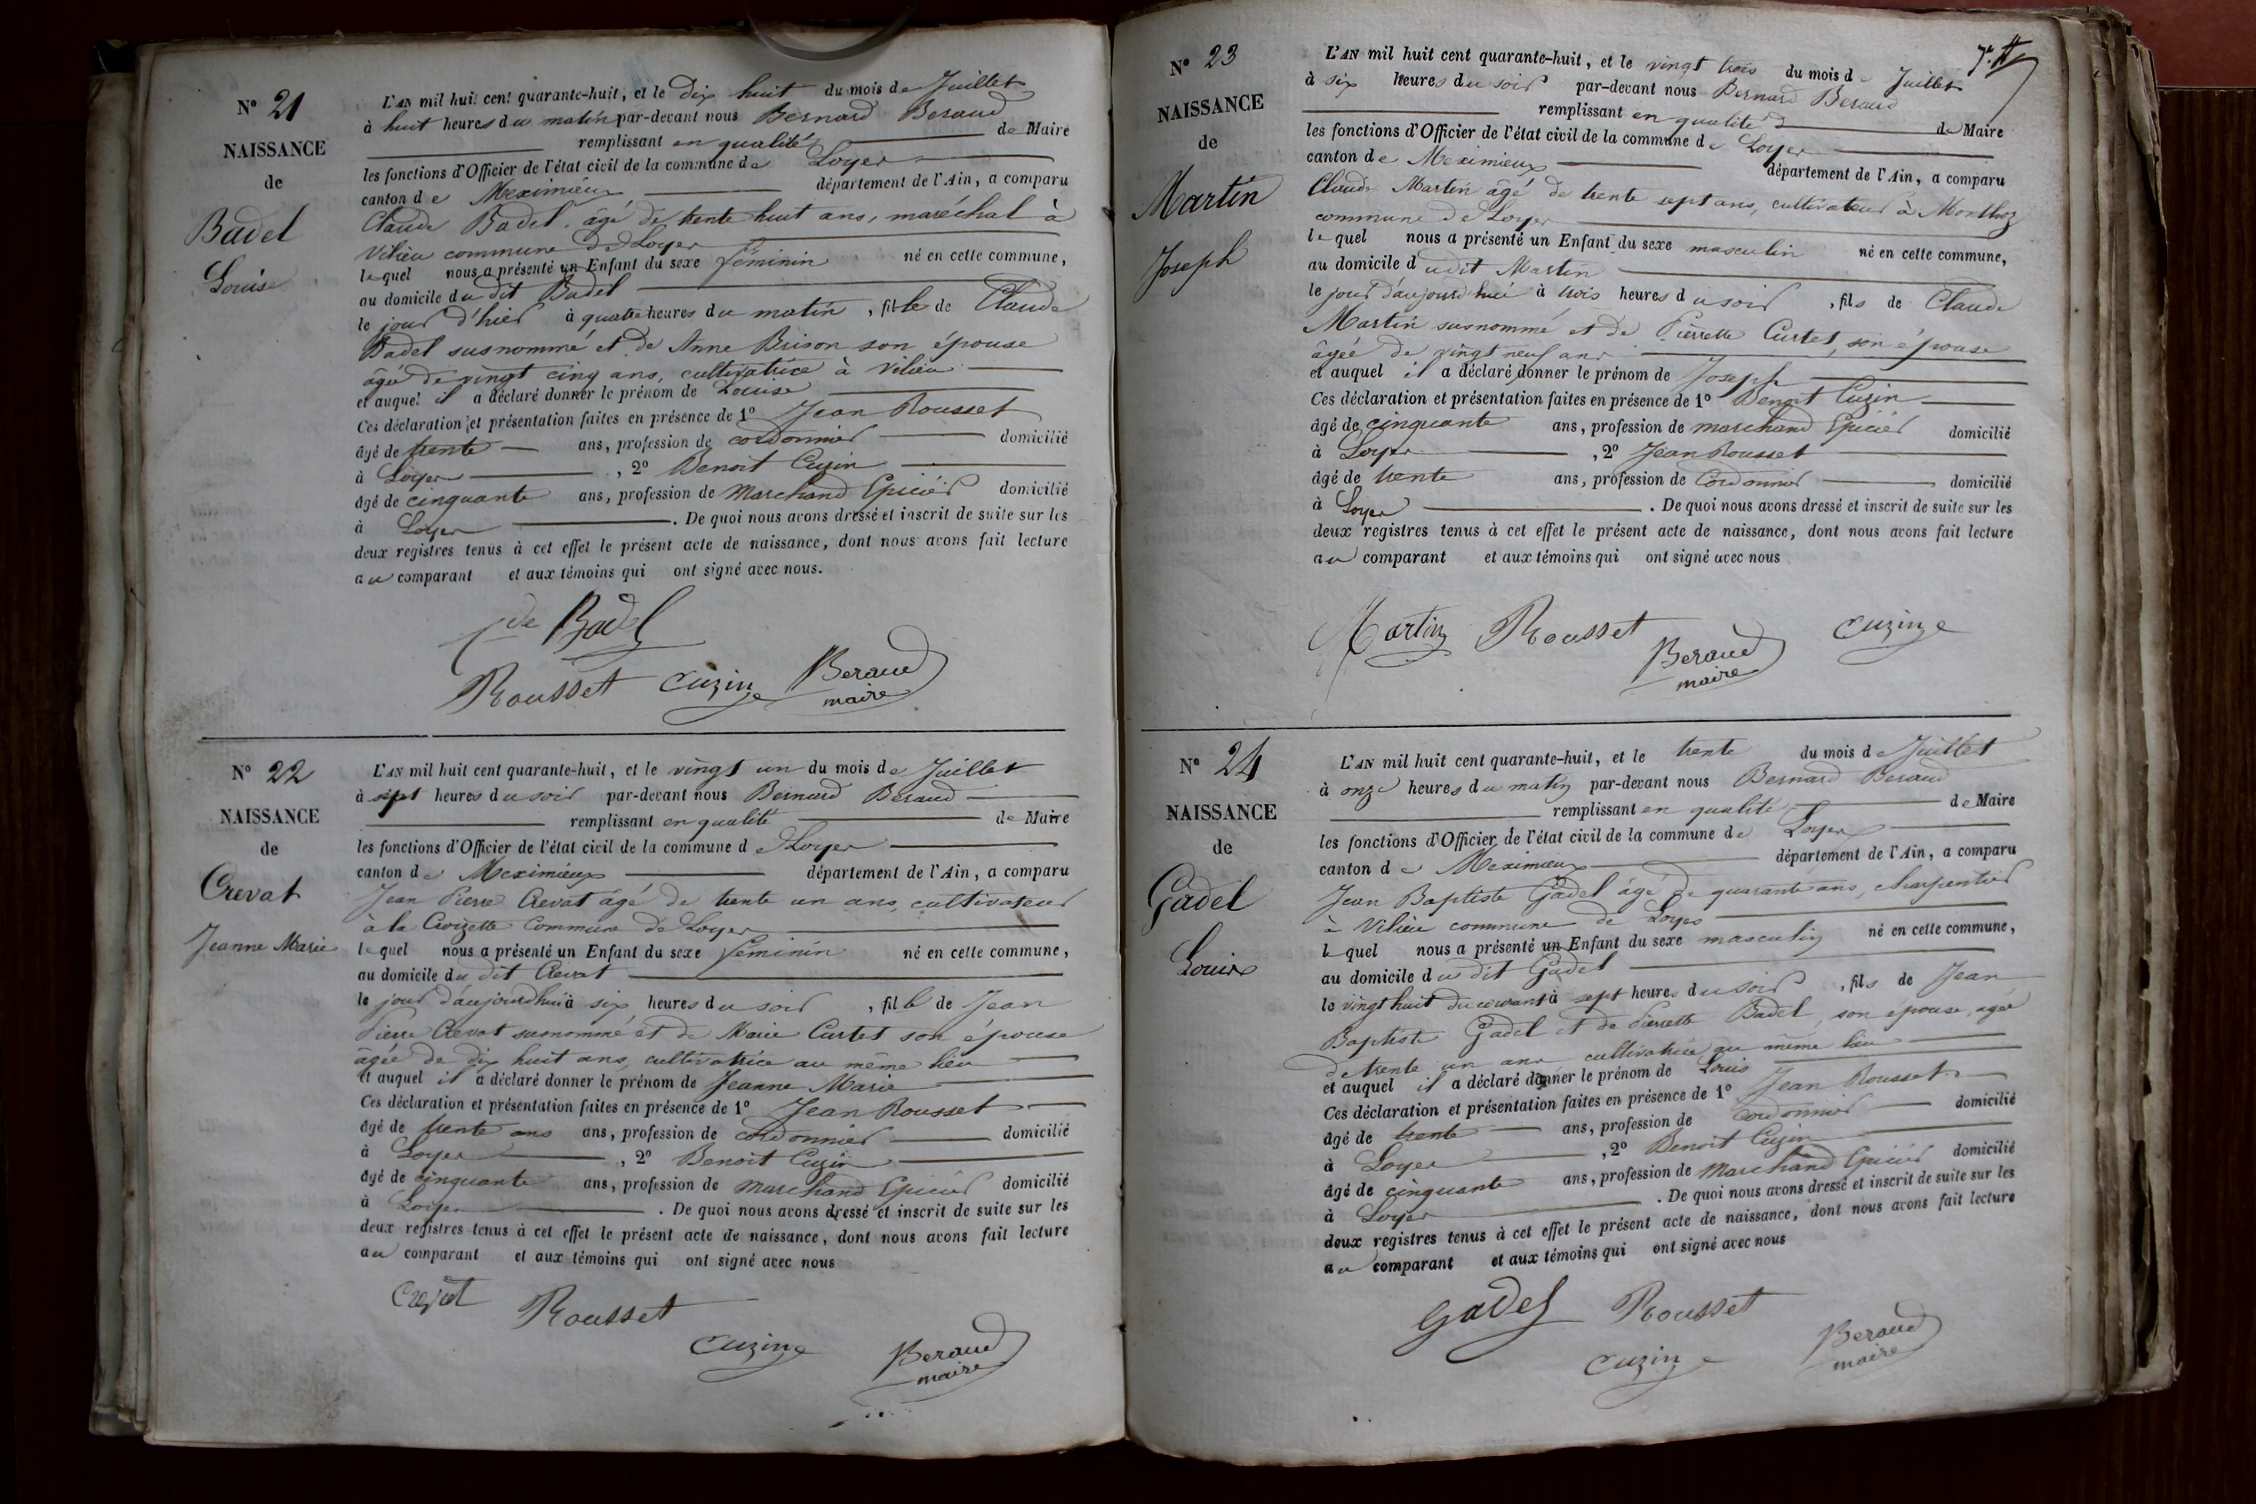 N° 21
NAISSANCE
de
Badel
Louise
L'AN mil huit cent quarante-huit, et le dix huit du mois de Juillet
à huit heures du matin par-devant nous Bernard Beraud
remplissant en qualité de Maire
les fonctions d'Officier de l'état civil de la commune de Loyes
canton de Meximieux département de l'Ain, a comparu
Claude Badel, âgé de trente huit ans, maréchal à
Vilieu commune de Loyes
lequel nous a présenté un Enfant du sexe féminin né en cette commune,
au domicile du dit Badel
le jour d'hier à quatre heures du matin, fille de Claude
Badel susnommé et de Anne Brison son épouse
âgée de vingt cinq ans, cultivatrice à Vilieu
et auquel il a déclaré donner le prénom de Louise
Ces déclaration et présentation faites en présence de 1° Jean Rousset
âgé de trente ans, profession de cordonnier domicilié
à Loyes, 2° Benoit Cuzin
âgé de cinquante ans, profession de Marchand Epicier domicilié
à Loyes. De quoi nous avons dressé et inscrit de suite sur les
deux registres tenus à cet effet le présent acte de naissance, dont nous avons fait lecture
au comparant et aux témoins qui ont signé avec nous.
Badel
Rousset Cuzin Beraud
maire
N° 22
NAISSANCE
de
Crevat
Jeanne Marie
L'AN mil huit cent quarante-huit, et le vingt un du mois de Juillet
à sept heures du soir par-devant nous Bernard Beraud
remplissant en qualité de Maire
les fonctions d'Officier de l'état civil de la commune de Loyes
canton de Meximieux département de l'Ain, a comparu
Jean Pierre Crevat âgé de trente un ans, cultivateur
à la Croizette commune de Loyes
lequel nous a présenté un Enfant du sexe féminin né en cette commune,
au domicile du dit Crevat
le jour d'aujourdhui à six heures du soir, fille de Jean
Pierre Crevat susnommé et de Marie Curtet son épouse
âgée de dix huit ans, cultivatrice au même lieu
et auquel il a déclaré donner le prénom de Jeanne Marie
Ces déclaration et présentation faites en présence de 1° Jean Rousset
âgé de trente ans ans, profession de cordonnier domicilié
à Loyes, 2° Benoit Cuzin
âgé de cinquante ans, profession de marchand Epicier domicilié
à Loyes. De quoi nous avons dressé et inscrit de suite sur les
deux registres tenus à cet effet le présent acte de naissance, dont nous avons fait lecture
au comparant et aux témoins qui ont signé avec nous
Crevat Rousset
Cuzin Beraud
maire
N° 23
NAISSANCE
de
Martin
Joseph
L'AN mil huit cent quarante-huit, et le vingt trois du mois de Juillet
à six heures du soir par-devant nous Bernard Beraud
remplissant en qualité de Maire
les fonctions d'Officier de l'état civil de la commune de Loyes
canton de Meximieux département de l'Ain, a comparu
Claude Martin âgé de trente sept ans, cultivateur à Monthoz
commune de Loyes
lequel nous a présenté un Enfant du sexe masculin né en cette commune,
au domicile dudit Martin
le jour d'aujourdhui à trois heures du soir, fils de Claude
Martin susnommé et de Pierrette Curtet, son épouse
âgée de vingt neuf ans
et auquel il a déclaré donner le prénom de Joseph
Ces déclaration et présentation faites en présence de 1° Benoit Cuzin
âgé de cinquante ans, profession de marchand Epicier domicilié
à Loyes, 2° Jean Rousset
âgé de trente ans, profession de Cordonnier domicilié
à Loyes. De quoi nous avons dressé et inscrit de suite sur les
deux registres tenus à cet effet le présent acte de naissance, dont nous avons fait lecture
au comparant et aux témoins qui ont signé avec nous
Martin Rousset Cuzin
Beraud
maire
N° 24
NAISSANCE
de
Gadel
Louis
L'AN mil huit cent quarante-huit, et le trente du mois de Juillet
à onze heures du matin par-devant nous Bernard Beraud
remplissant en qualité de Maire
les fonctions d'Officier de l'état civil de la commune de Loyes
canton de Meximieux département de l'Ain, a comparu
Jean Baptiste Gadel âgé de quarante ans, charpentier
à Vilieu commune de Loyes
lequel nous a présenté un Enfant du sexe masculin né en cette commune,
au domicile du dit Gadel
le vingt huit du courant à sept heures du soir, fils de Jean
Baptiste Gadel et de Pierrette Badel, son épouse, agée
de trente un ans cultivatrice au même lieu
et auquel il a déclaré donner le prénom de Louis
Ces déclaration et présentation faites en présence de 1° Jean Rousset
âgé de trente ans, profession de Cordonnier domicilié
à Loyes, 2° Benoit Cuzin
âgé de cinquante ans, profession de Marchand Epicier domicilié
à Loyes. De quoi nous avons dressé et inscrit de suite sur les
deux registres tenus à cet effet le présent acte de naissance, dont nous avons fait lecture
au comparant et aux témoins qui ont signé avec nous
Gadel Rousset
Cuzin Beraud
maire